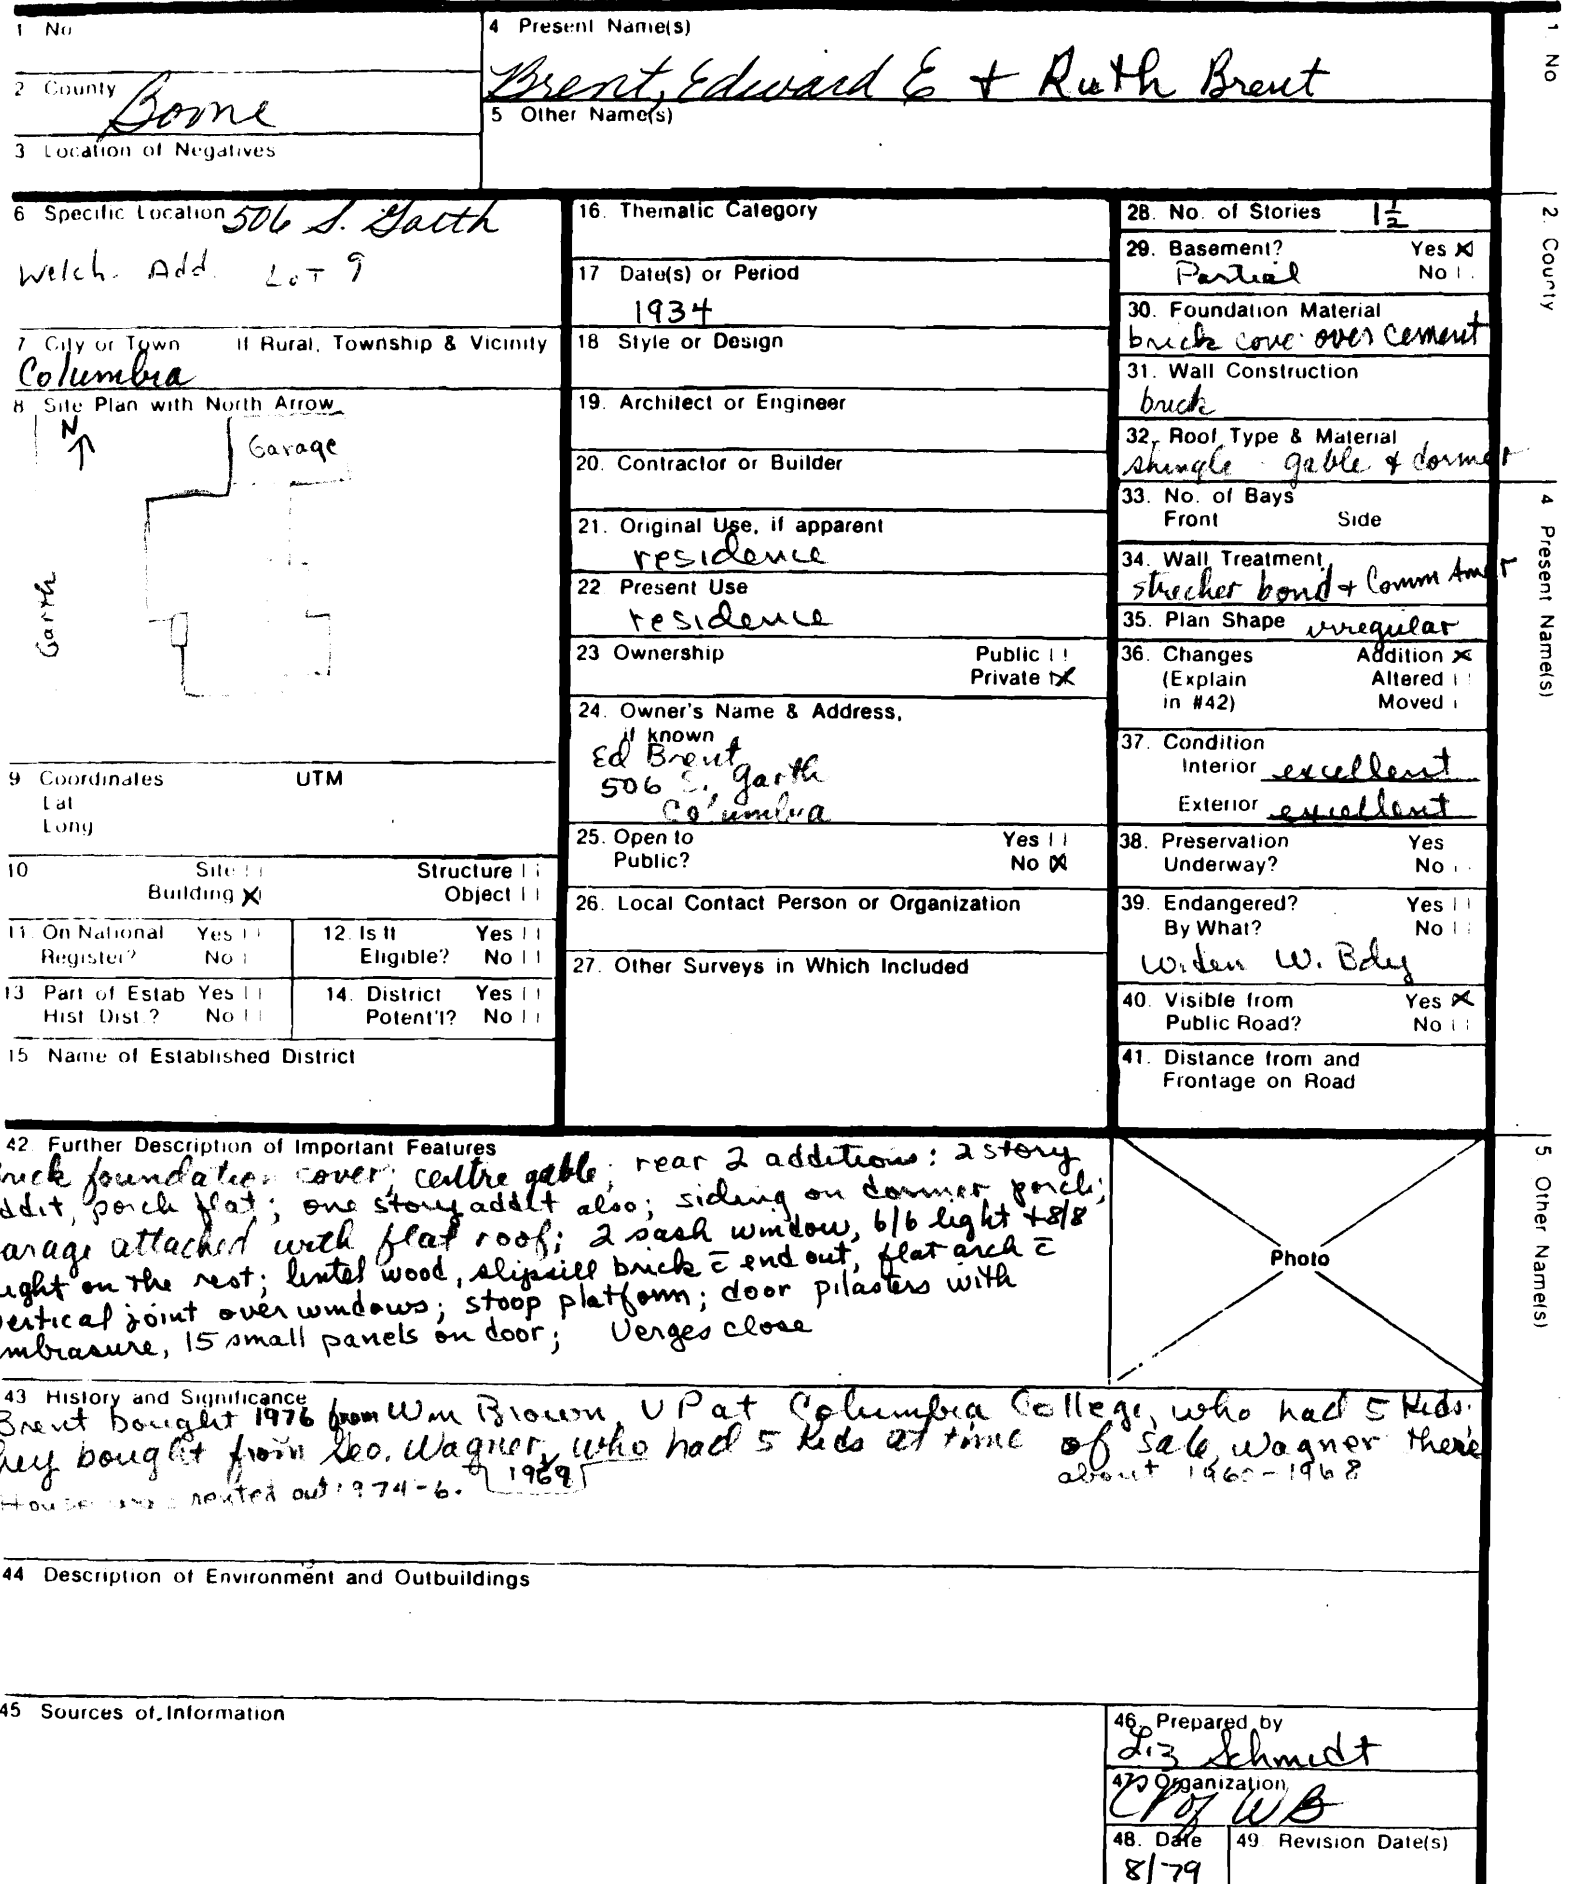 1 No
4 Present Name(s)
Brent, Edward E + Ruth Brent
2 County
Boone
5 Other Name(s)
3 Location of Negatives
6 Specific Location 506 S. Garth
Welch. Add. Lot 9
7 City or Town If Rural, Township & Vicinity
Columbia
8 Site Plan with North Arrow
N
Garage
Garth
9 Coordinates UTM
Lat
Long
10 Site Structure
Building X Object
11. On National Register? Yes No
12. Is It Eligible? Yes No
13 Part of Estab Hist. Dist.? Yes No
14. District Potent'l? Yes No
15 Name of Established District
16. Thematic Category
17 Date(s) or Period
1934
18 Style or Design
19. Architect or Engineer
20. Contractor or Builder
21. Original Use, if apparent
residence
22 Present Use
residence
23 Ownership Public
Private X
24. Owner's Name & Address,
if known
Ed Brent
506 S. Garth
Columbia
25. Open to Yes
Public? No X
26. Local Contact Person or Organization
27. Other Surveys in Which Included
28. No. of Stories 1½
29. Basement? Yes X
Partial No
30. Foundation Material
brick cove. over cement
31. Wall Construction
brick
32. Roof Type & Material
shingle gable & dormer
33. No. of Bays
Front Side
34. Wall Treatment
strecher bond + Comm Amer
35. Plan Shape irregular
36. Changes Addition X
(Explain Altered
in #42) Moved
37. Condition
Interior excellent
Exterior excellent
38. Preservation Yes
Underway? No
39. Endangered? Yes
By What? No
Widen W. Bdy
40. Visible from Yes X
Public Road? No
41. Distance from and
Frontage on Road
42. Further Description of Important Features
rick foundation cover; centre gable; rear 2 additions: 2 story
ddit, porch flat; one story addit also; siding on dormer porch;
arage attached with flat roof; 2 sash window, 6/6 light + 8/8
ight on the rest; lintel wood, slipsill brick c̄ end out, flat arch c̄
ertical joint over windows; stoop platform; door pilasters with
mbrasure, 15 small panels on door; Verges close
Photo
43 History and Significance
Brent bought 1976 from Wm Brown, VP at Columbia College, who had 5 kids.
hey bought from Geo. Wagner, who had 5 kids at time of sale, Wagner there
1969 about 1960-1968
House was rented out 1974-6.
44 Description of Environment and Outbuildings
45 Sources of Information
46. Prepared by
Liz Schmidt
47. Organization
CP of WB
48. Date
8/79
49. Revision Date(s)
1. No
2. County
4 Present Name(s)
5. Other Name(s)